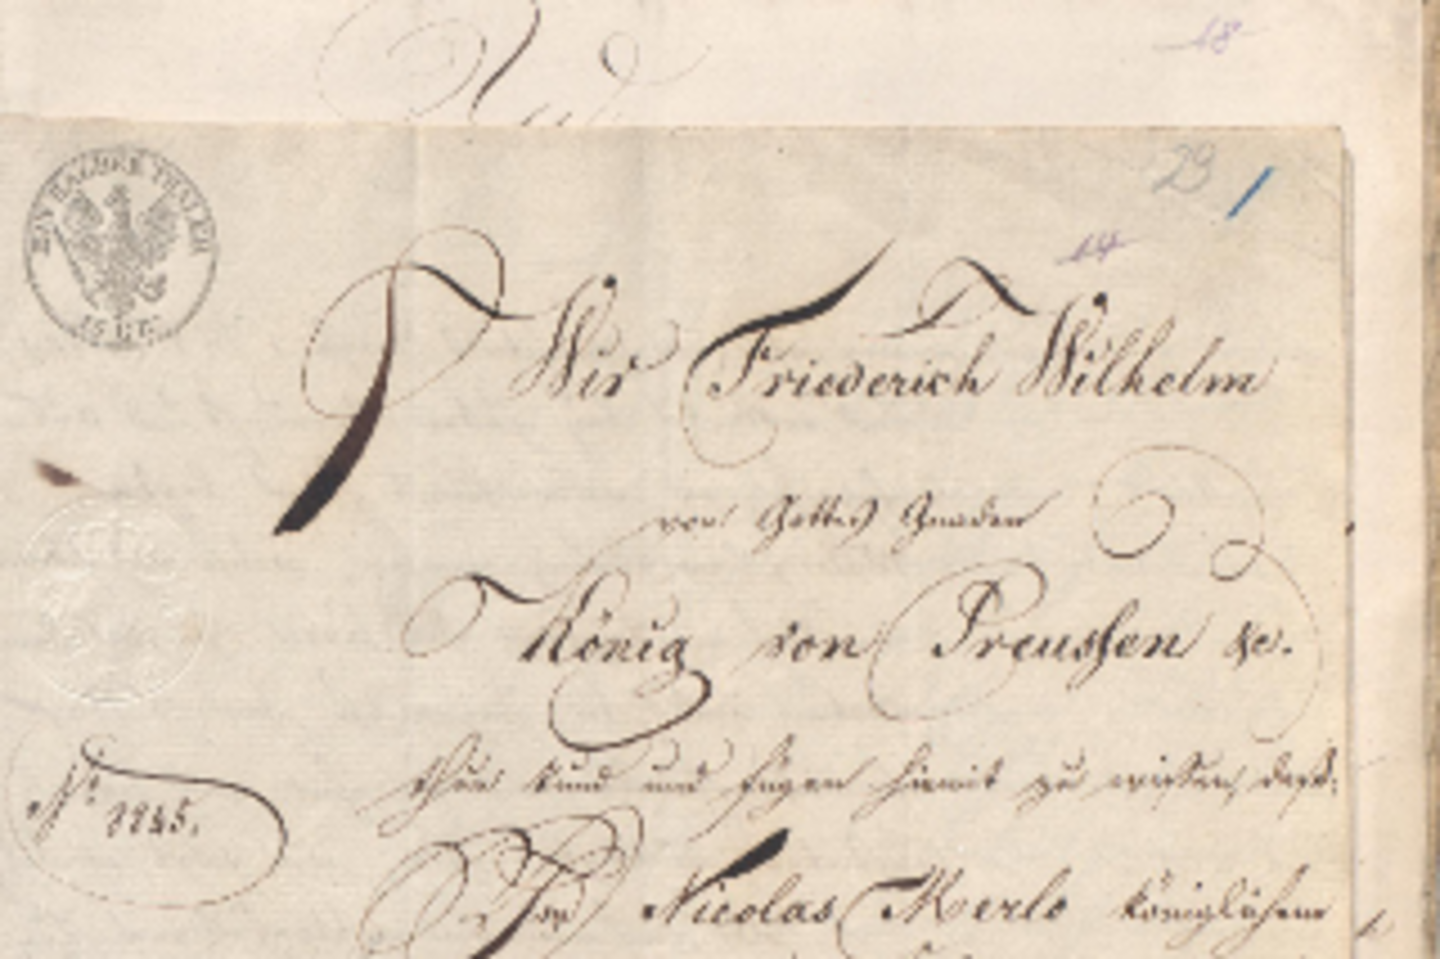 18
29 /
14
EIN HALBER THALER
15 GR.
Wir Friederich Wilhelm
von Gottes Gnaden
König von Preussen &c.
thun kund und fügen hiemit zu wissen, daß:
Nº 1245.
Vor Nicolas Merlo Königlichem